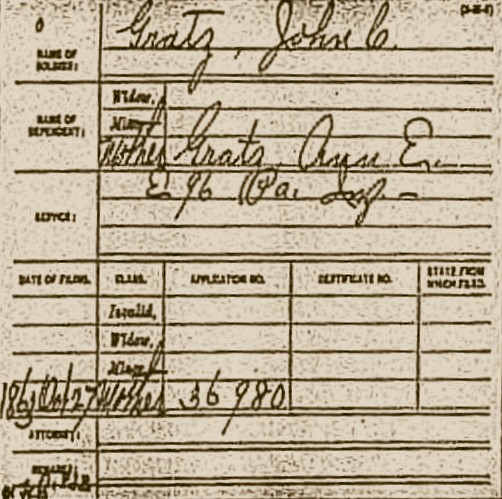 (3-H-6)
Gratz, John C.
NAME OF SOLDIER:
Widow,
NAME OF DEPENDENT:
Minor,
Mother Gratz Ann E.
E 96 Pa. Inf.
SERVICE:
DATE OF FILING. CLASS. APPLICATION NO. CERTIFICATE NO. STATE FROM WHICH FILED.
Invalid,
Widow,
Minor,
1863 Oct 27 Mother 36 980
ATTORNEY:
REMARKS: